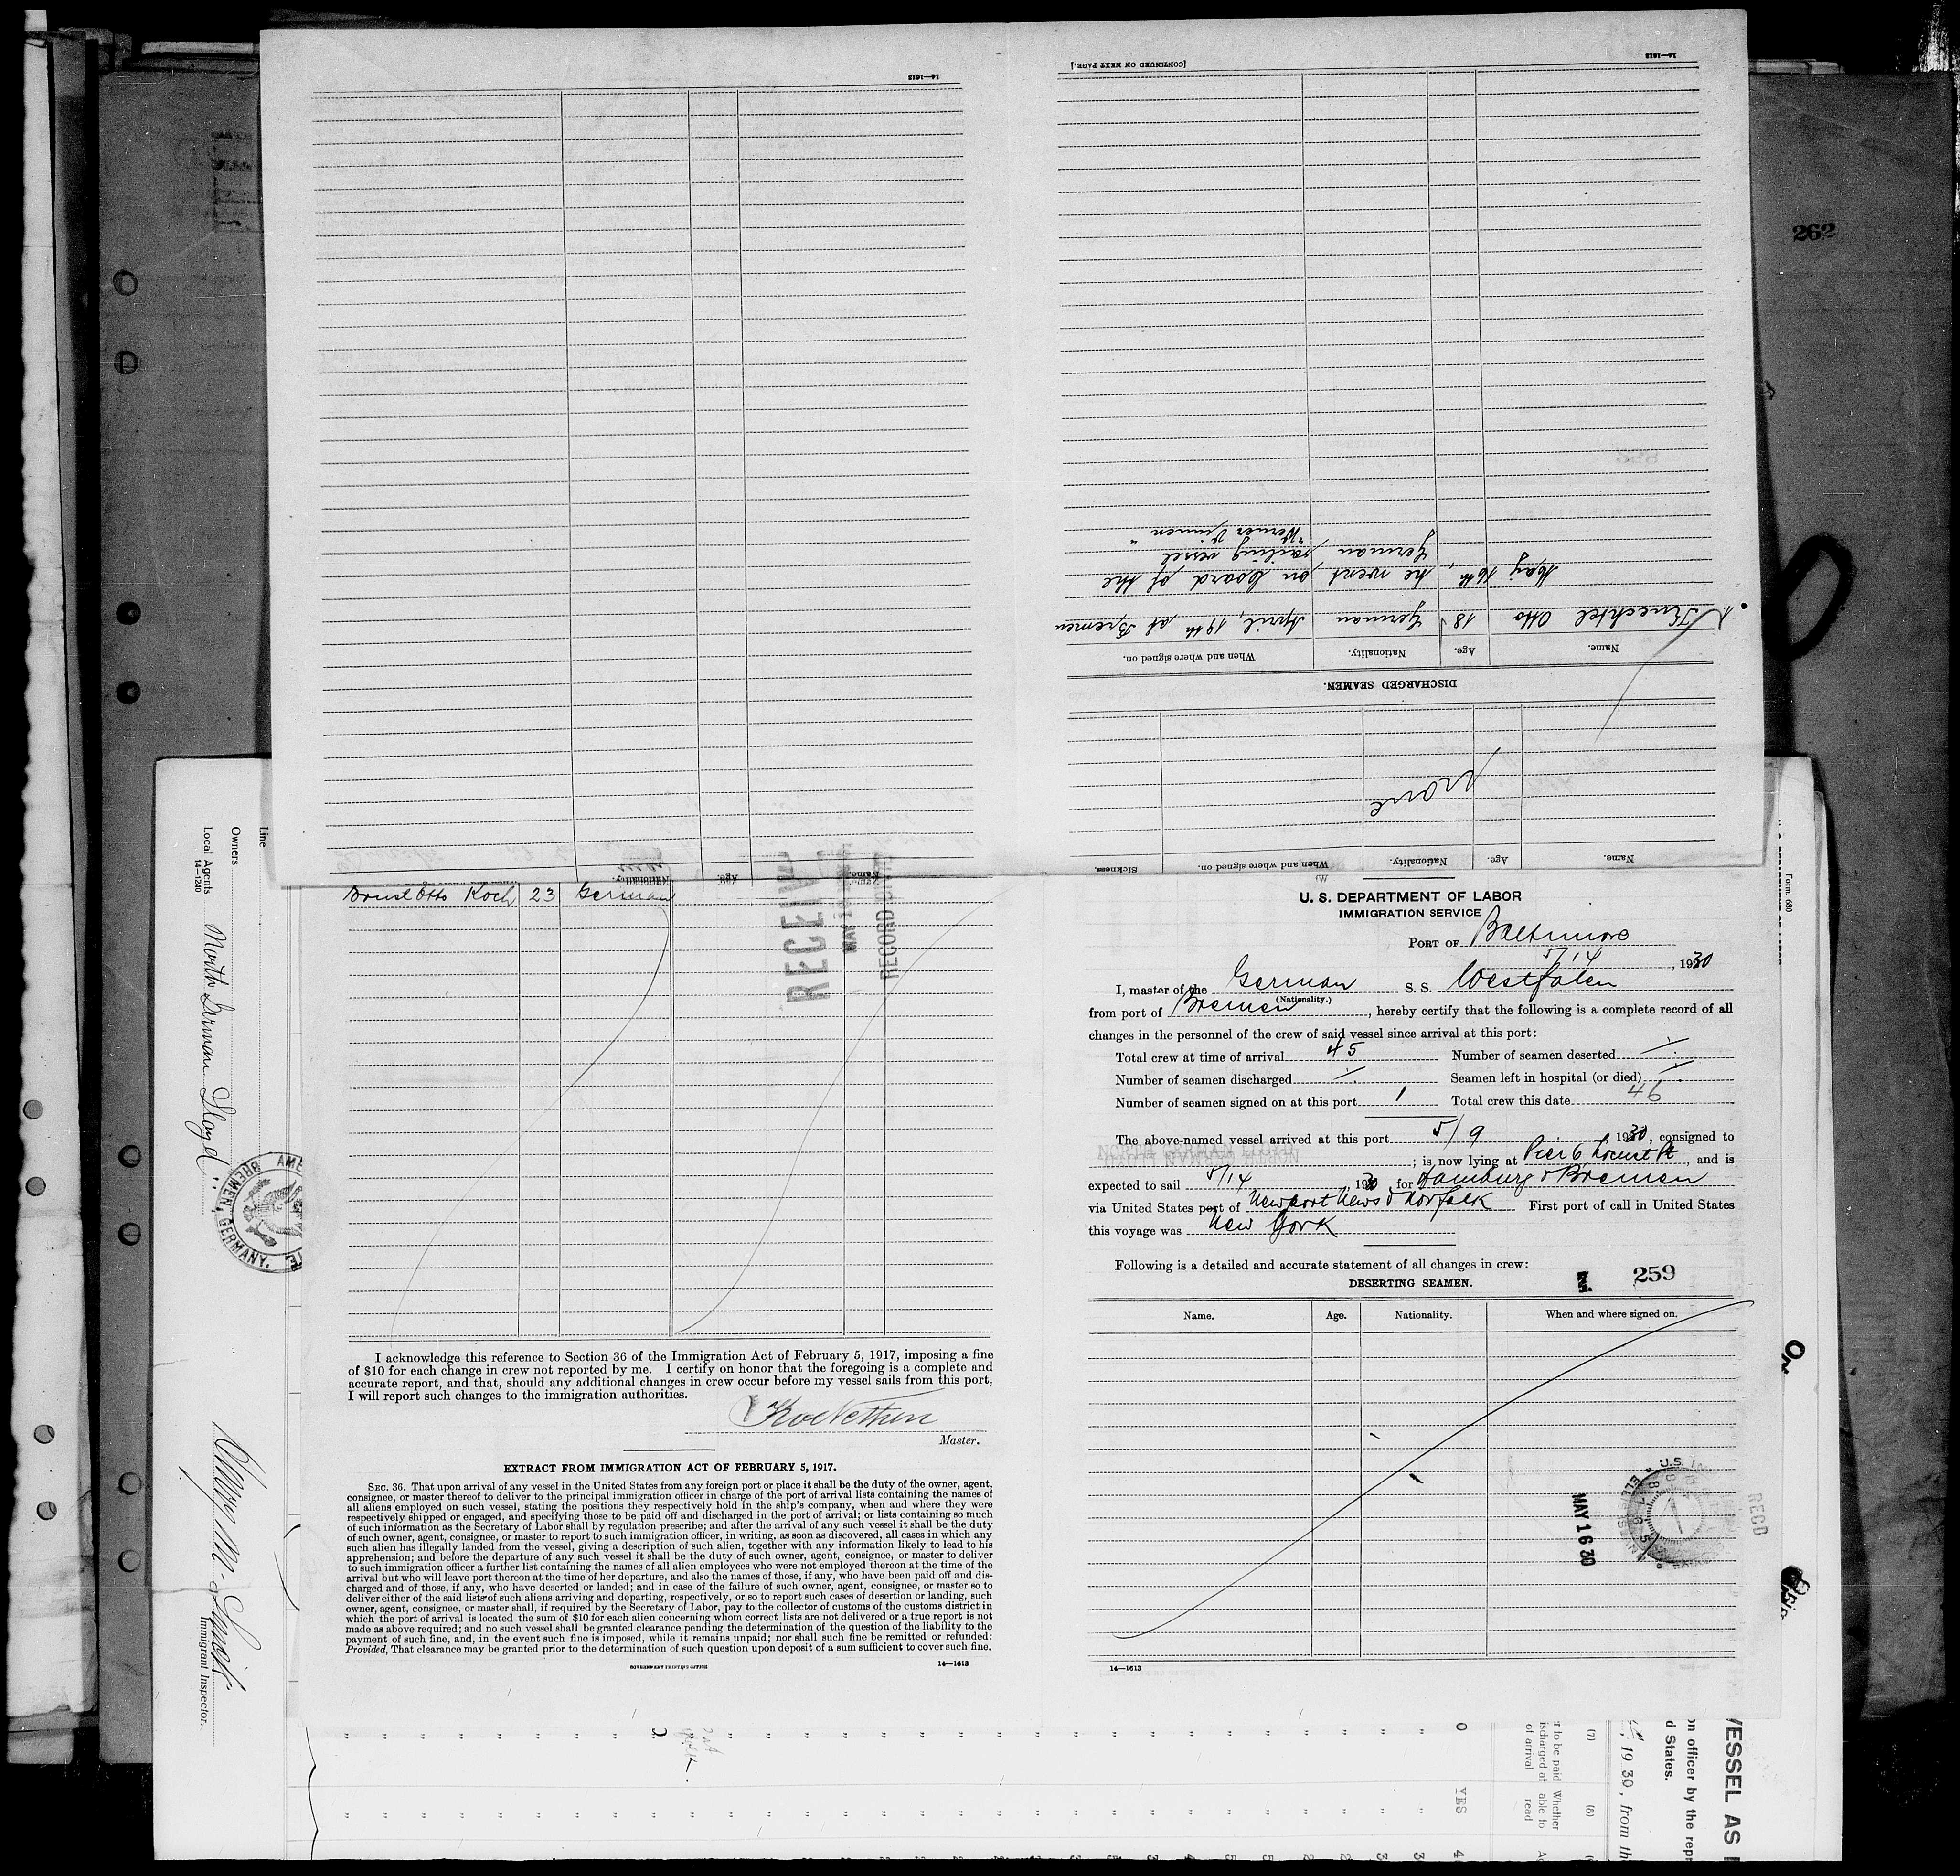 14—1613
[CONTINUED ON NEXT PAGE.]
14—1613
262
"Werner Vinnen"
German sailing vessel
May 16th, he went on board of the
Knechtel Otto 18 German April, 19th at Bremen
Name. Age. Nationality. When and where signed on.
DISCHARGED SEAMEN.
none
Name. Age. Nationality. When and where signed on. Sickness.
Name. Age. Nationality.
Otto Koch 23 German
RECEIVED
MAY
RECORD DIV
Line
Owners
Local Agents North German Lloyd
14—1240
BREMEN, GERMANY.
Immigrant Inspector.
I acknowledge this reference to Section 36 of the Immigration Act of February 5, 1917, imposing a fine
of $10 for each change in crew not reported by me. I certify on honor that the foregoing is a complete and
accurate report, and that, should any additional changes in crew occur before my vessel sails from this port,
I will report such changes to the immigration authorities.
Master.
EXTRACT FROM IMMIGRATION ACT OF FEBRUARY 5, 1917.
SEC. 36. That upon arrival of any vessel in the United States from any foreign port or place it shall be the duty of the owner, agent,
consignee, or master thereof to deliver to the principal immigration officer in charge of the port of arrival lists containing the names of
all aliens employed on such vessel, stating the positions they respectively hold in the ship's company, when and where they were
respectively shipped or engaged, and specifying those to be paid off and discharged in the port of arrival; or lists containing so much
of such information as the Secretary of Labor shall by regulation prescribe; and after the arrival of any such vessel it shall be the duty
of such owner, agent, consignee, or master to report to such immigration officer, in writing, as soon as discovered, all cases in which any
such alien has illegally landed from the vessel, giving a description of such alien, together with any information likely to lead to his
apprehension; and before the departure of any such vessel it shall be the duty of such owner, agent, consignee, or master to deliver
to such immigration officer a further list containing the names of all alien employees who were not employed thereon at the time of the
arrival but who will leave port thereon at the time of her departure, and also the names of those, if any, who have been paid off and dis-
charged and of those, if any, who have deserted or landed; and in case of the failure of such owner, agent, consignee, or master so to
deliver either of the said lists of such aliens arriving and departing, respectively, or so to report such cases of desertion or landing, such
owner, agent, consignee, or master shall, if required by the Secretary of Labor, pay to the collector of customs of the customs district in
which the port of arrival is located the sum of $10 for each alien concerning whom correct lists are not delivered or a true report is not
made as above required; and no such vessel shall be granted clearance pending the determination of the question of the liability to the
payment of such fine, and, in the event such fine is imposed, while it remains unpaid; nor shall such fine be remitted or refunded:
Provided, That clearance may be granted prior to the determination of such question upon deposit of a sum sufficient to cover such fine.
GOVERNMENT PRINTING OFFICE 14—1613
U. S. DEPARTMENT OF LABOR
IMMIGRATION SERVICE
PORT OF Baltimore
5/14, 1930
I, master of the German S. S. Westfalen
(Nationality.)
from port of Bremen, hereby certify that the following is a complete record of all
changes in the personnel of the crew of said vessel since arrival at this port:
Total crew at time of arrival 45 Number of seamen deserted
Number of seamen discharged Seamen left in hospital (or died)
Number of seamen signed on at this port 1 Total crew this date 46
The above-named vessel arrived at this port 5/9, 1930, consigned to
NORTH GERMAN LLOYD ; is now lying at Pier 6 Locust Pt, and is
expected to sail 5/14 1930 for Hamburg & Bremen
via United States port of Newport News & Norfolk First port of call in United States
this voyage was New York
Following is a detailed and accurate statement of all changes in crew:
DESERTING SEAMEN.
259
Name. Age. Nationality. When and where signed on.
MAY 16 30
RECD
14—1613
Form 680
VESSEL AS
on officer by the repr
d States.
, 1930, from th
(7) (8)
r to be paid Whether
ischarged at able to
of arrival read
0 YES